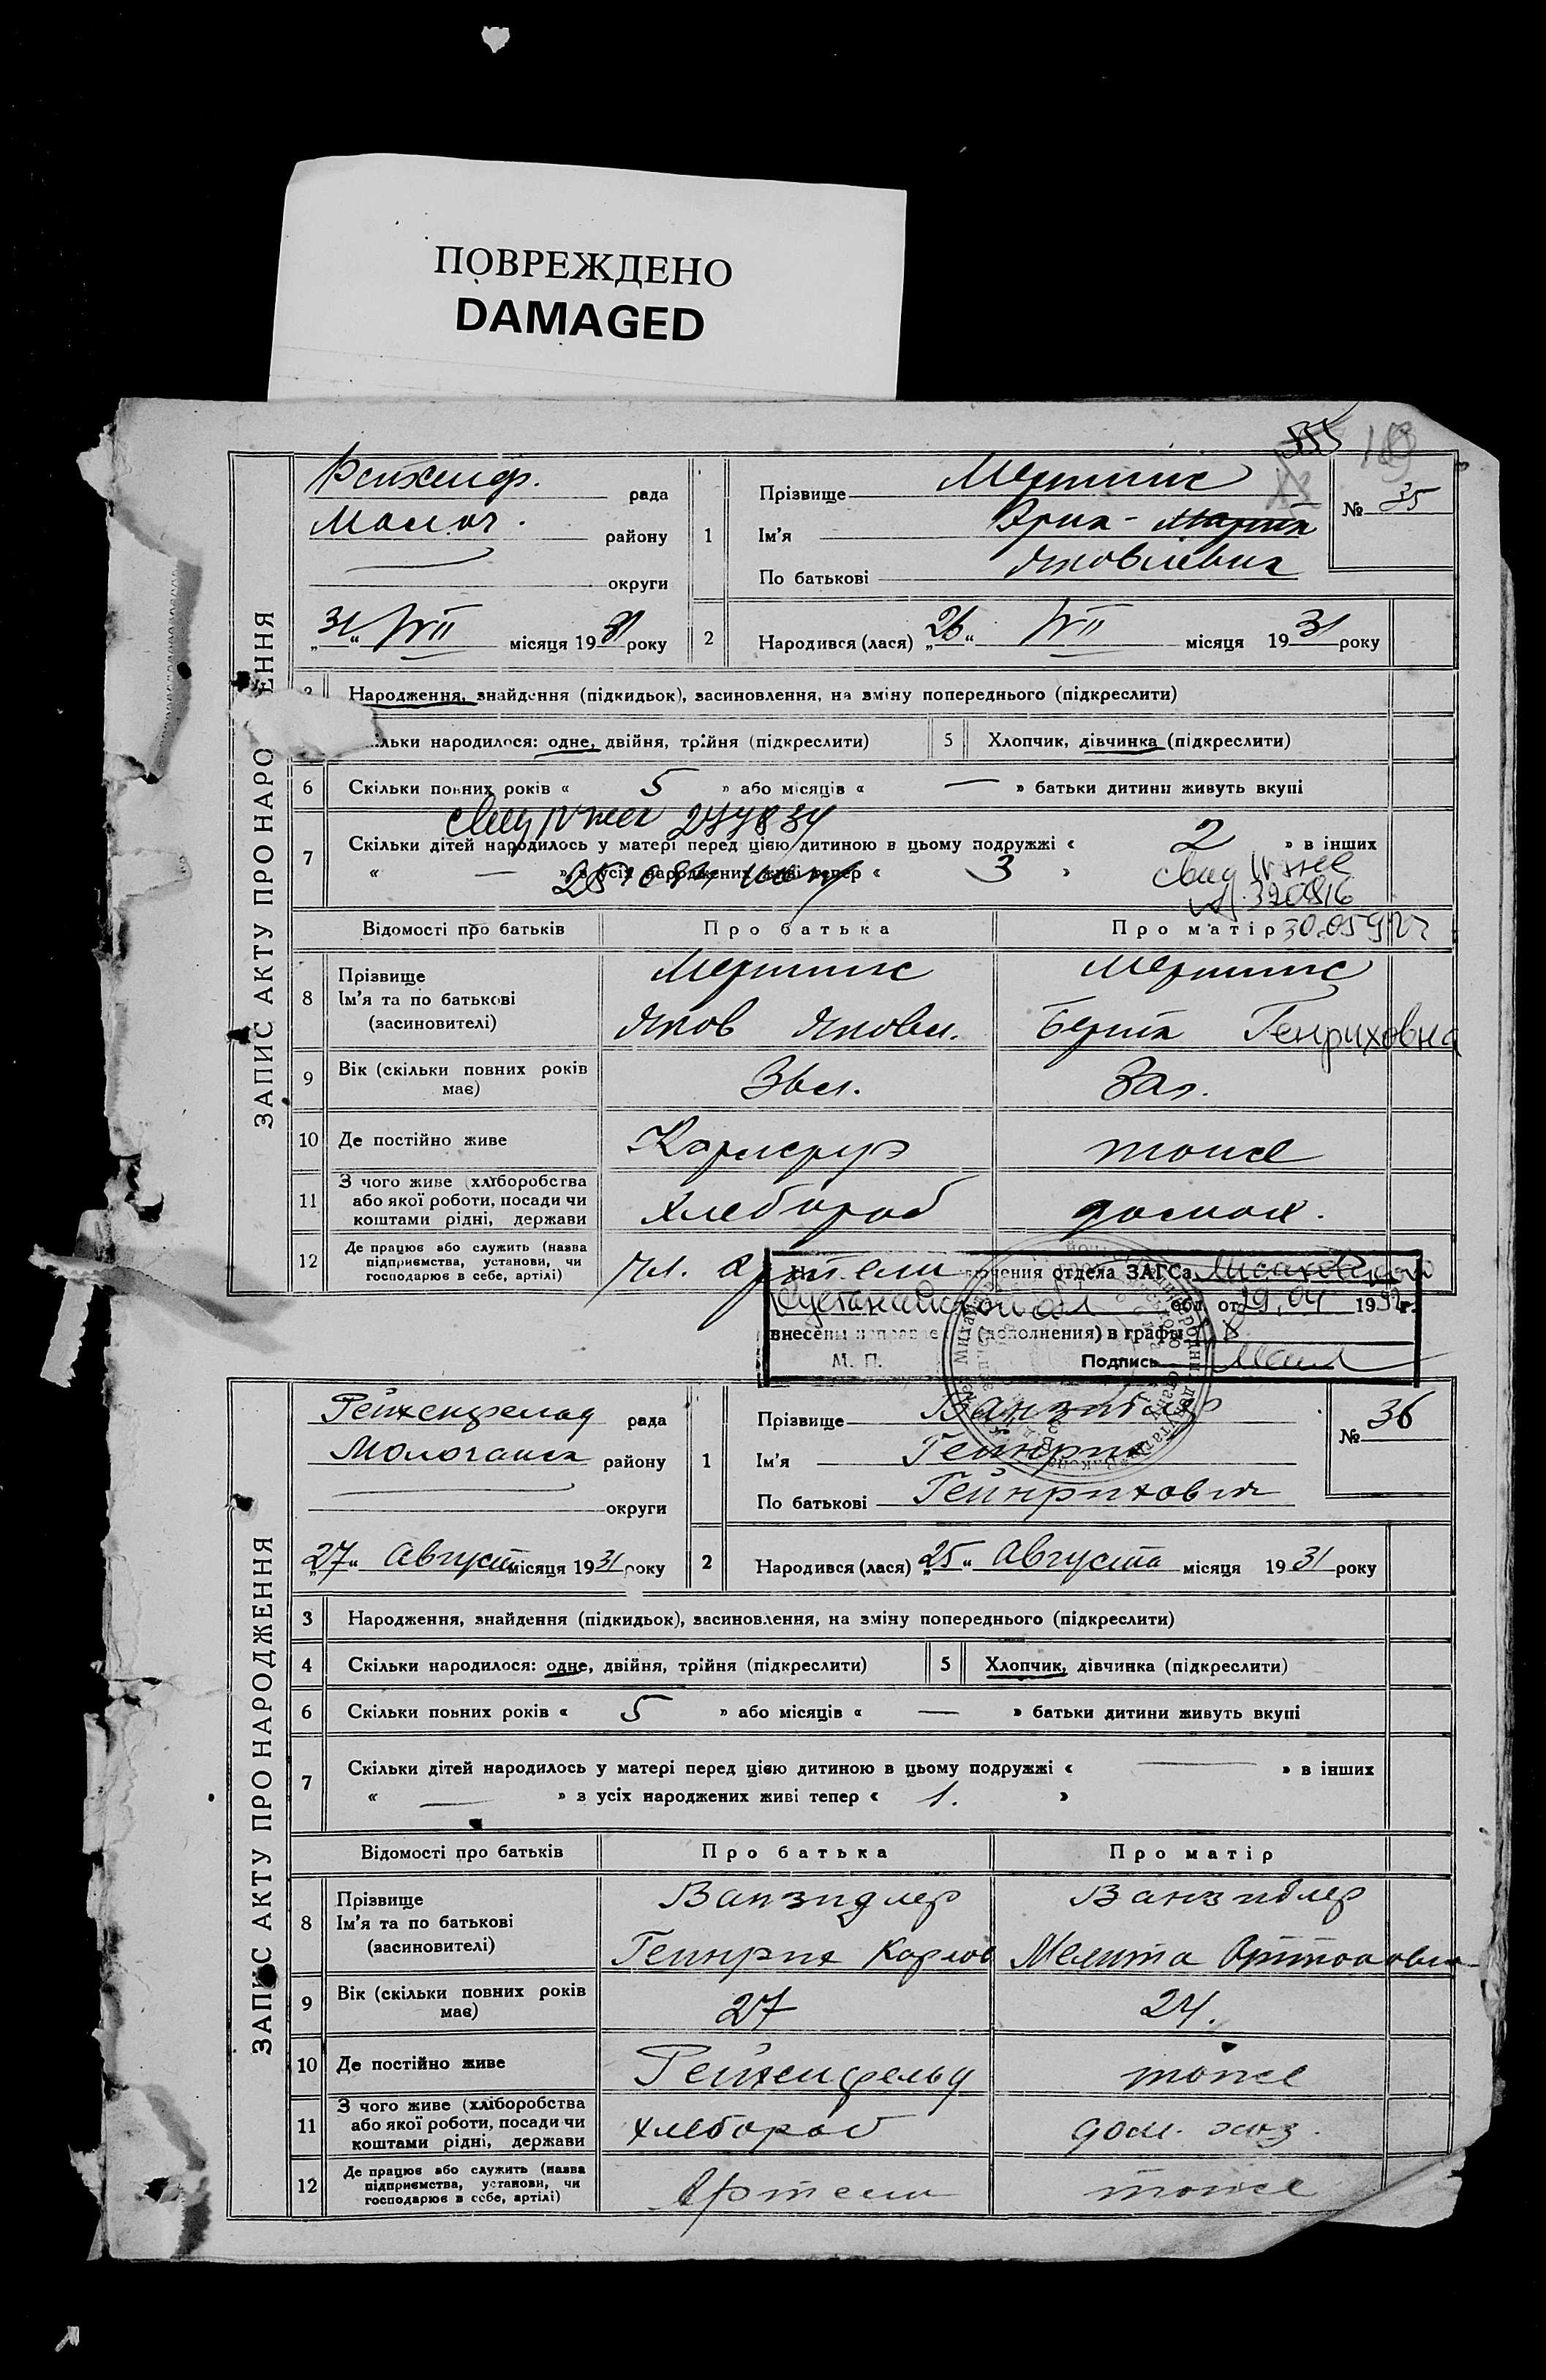 ПОВРЕЖДЕНО
DAMAGED
ЗАПИС АКТУ ПРО НАРО ЕННЯ
рада
Молоч. району
округи
31 VII місяця 1931 року
1 Прізвище
Ім'я
По батькові Яковлевич
№ 35
2 Народився (лася) „26“ VII місяця 1931 року
Народження, знайдення (підкидьок), засиновлення, на зміну попереднього (підкреслити)
льки народилося: одне, двійня, трійня (підкреслити) 5 Хлопчик, дівчинка (підкреслити)
6 Скільки повних років « 5 » або місяців « — » батьки дитини живуть вкупі
7 Скільки дітей народилось у матері перед цією дитиною в цьому подружжі « 2 » в інших
« — » з усіх народжених живі тепер « 3 »
320816
Відомості про батьків Про батька Про матір
8 Прізвище
Ім'я та по батькові
(засновителі)
Яков Яковл. Берта Генриховна
9 Вік (скільки повних років має)
10 Де постійно живе Карлсруэ тоже
11 З чого живе (хліборобства або якої роботи, посади чи коштами рідні, держави хлебороб домхоз.
12 Де працює або служить (назва підприємства, установи, чи господарює в себе, артілі) чл. артели
ючения отдела ЗАГСа
обл. от 29.04 1992г.
внесены исправле (дополнения) в графы 1, 8
М. П. Подпись
ЗАПИС АКТУ ПРО НАРОДЖЕННЯ
Рейхенфельд рада
Молочанск району
округи
„27“ Август місяця 1931 року
1 Прізвище Ванзидлер
Ім'я Гейнрих
По батькові Гейнрихович
№ 36
2 Народився (лася) „25“ Августа місяця 1931 року
3 Народження, знайдення (підкидьок), засиновлення, на зміну попереднього (підкреслити)
4 Скільки народилося: одне, двійня, трійня (підкреслити) 5 Хлопчик, дівчинка (підкреслити)
6 Скільки повних років « 5 » або місяців « — » батьки дитини живуть вкупі
7 Скільки дітей народилось у матері перед цією дитиною в цьому подружжі « — » в інших
« — » з усіх народжених живі тепер « 1. »
Відомості про батьків Про батька Про матір
8 Прізвище
Ім'я та по батькові
(засиновителі)
Ванзидлер Ванзидлер
Гейнрих Карлов Мелита
9 Вік (скільки повних років має) 27 24.
10 Де постійно живе Рейхенфельд тоже
11 З чого живе (хліборобства або якої роботи, посади чи коштами рідні, держави хлебороб дом. хоз.
12 Де працює або служить (назва підприємства, установи, чи господарює в себе, артілі) Артели тоже